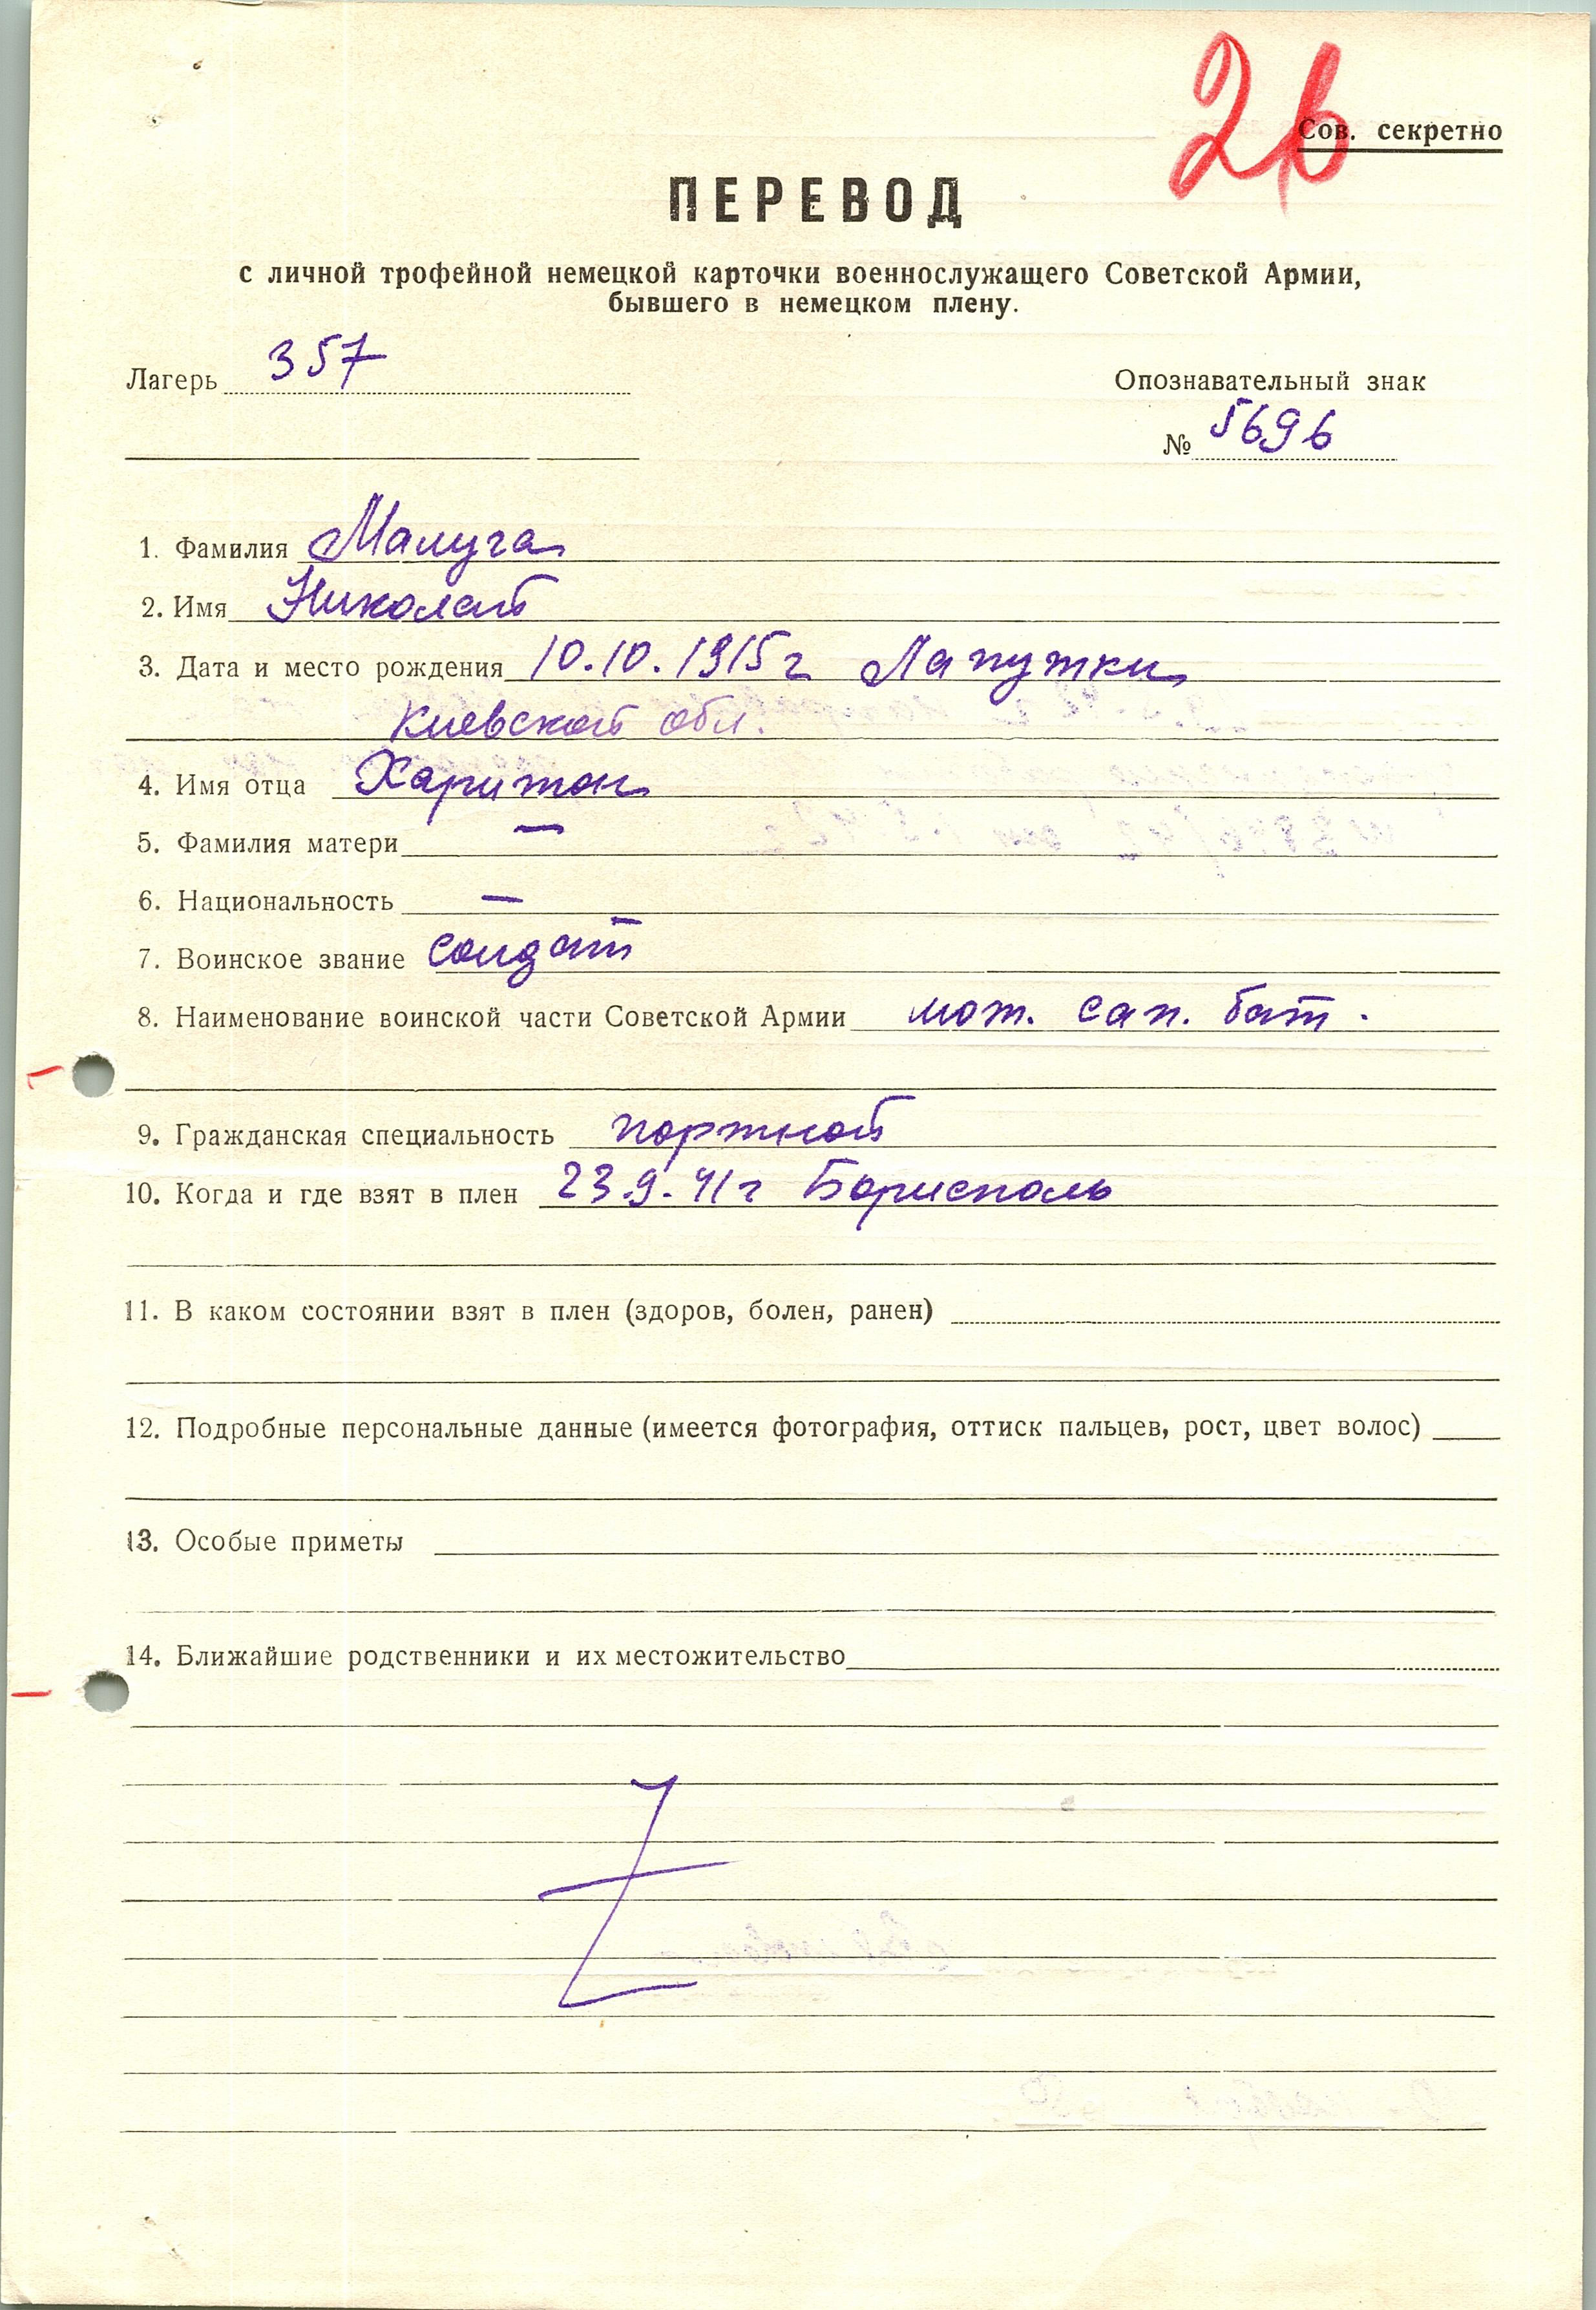 26
Сов. секретно
ПЕРЕВОД
с личной трофейной немецкой карточки военнослужащего Советской Армии,
бывшего в немецком плену.
Лагерь 357
Опознавательный знак
№ 5696
1. Фамилия Малуга
2. Имя Николай
3. Дата и место рождения 10.10.1915г Лапутки
Киевской обл.
4. Имя отца Харитон
5. Фамилия матери —
6. Национальность —
7. Воинское звание солдат
8. Наименование воинской части Советской Армии мот. сап. бат.
9. Гражданская специальность портной
10. Когда и где взят в плен 23.9.41г Борисполь
11. В каком состоянии взят в плен (здоров, болен, ранен)
12. Подробные персональные данные (имеется фотография, оттиск пальцев, рост, цвет волос)
13. Особые приметы
14. Ближайшие родственники и их местожительство